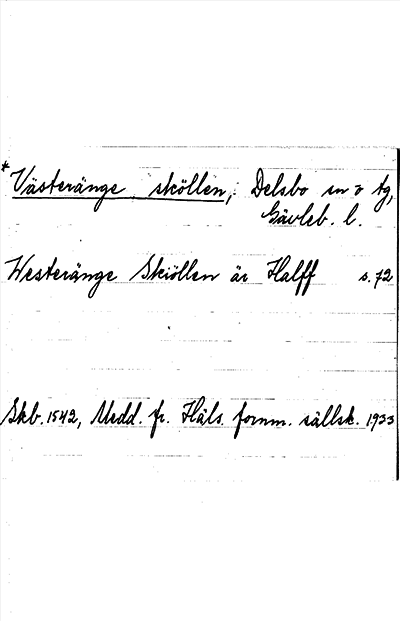 * Västeränge sköllen, Delsbo sn o tg,
Gävleb. l.
Westeränge Skiöllen är Halff s. 72
Skb. 1542, Medd. fr. Häls. fornm. sällsk. 1933